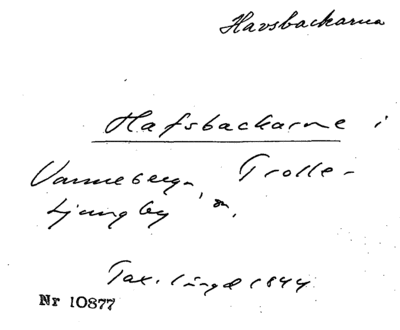 Havsbackarna
Hafsbackarne i
Vanneberga, Trolle-
Ljungby sn.
Tax. längd 1844
Nr 10877